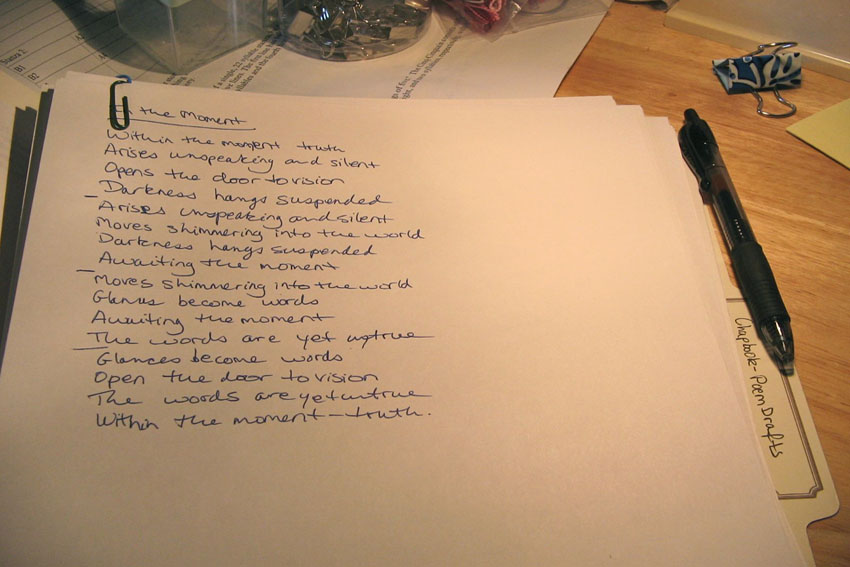 the Moment
Within the moment truth
Arises unspeaking and silent
Opens the door to vision
Darkness hangs suspended
Arises unspeaking and silent
Moves shimmering into the world
Darkness hangs suspended
Awaiting the moment
Moves shimmering into the world
Glances become words
Awaiting the moment
The words are yet untrue
Glances become words
Open the door to vision
The words are yet untrue
Within the moment - truth.
Chapbook - Poem Drafts
Stanza 2
B1
B2
A2